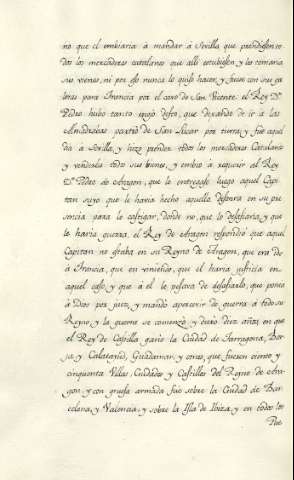 no que él embiaria á mandar á Sevilla que prendiesen to
dos los mercadores catalanes que allí estubiesen y les tomaria
sus vienes, ni por eso nunca lo quiso hacer, y fuese con sus ga
leras para Francia por el cavo de San Vicente. el Rey Dn
Pedro hubo tanto enojo desto, que dexando de ir á las
Almadravas partió de San Lucar por tierra, y fue aquel
dia á Sevilla, y hizo prender todos los mercadores Catalanes
y venderles todos sus bienes, y embio á requerir al Rey
Dn Pedro de Aragon, que le entregase luego aquel Capi
tan suyo que le havia hecho aquella desonra en su pre
sencia para lo castigar, donde no, que lo desafiaria, y que
le haria guerra. el Rey de Aragon respondió que aquel
Capitan no estaba en su Reyno de Aragon, que era ido
á Francia, que en veniendo, que él haria justicia en
aquel caso, y que á él le pesava de desafiarlo, que ponia
á Dios por juez, y mandó apercevir de guerra á todo su
Reyno, y la guerra se comenzó, y duró diez años, en que
el Rey de Castilla ganó la Ciudad de Tarragona, Bor
ja, y Calatayud, Guadamar, y otros, que fueron ciento y
cinquenta Villas, Ciudades y Castillos del Reyno de Ara
gon, y con gruesa armada fue sobre la Ciudad de Bar
celona, y Valencia, y sobre la Isla de Ibiza, y en todos los
Pue